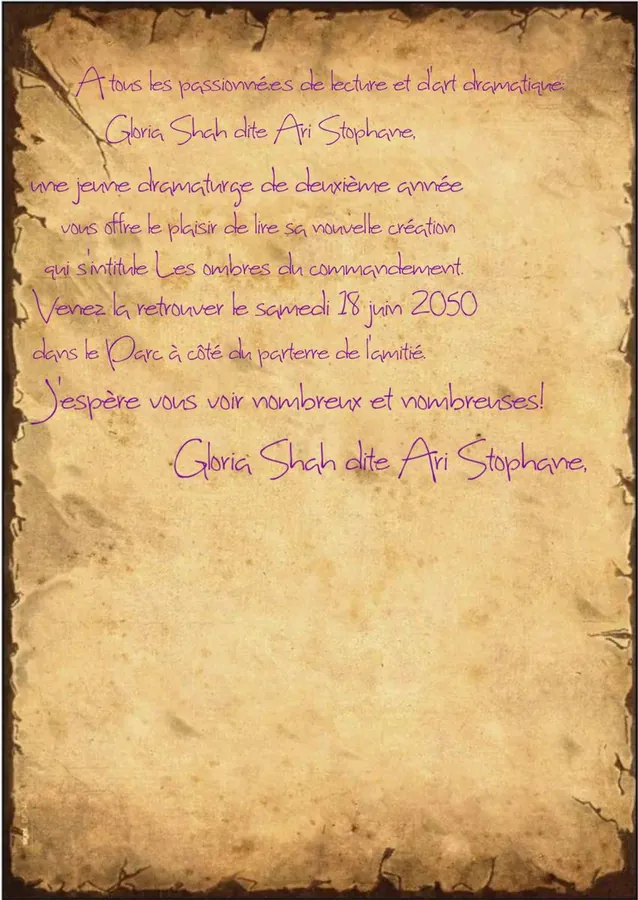 A tous les passionné.e.s de lecture et d'art dramatique:
Gloria Shah dite Ari Stophane,
une jeune dramaturge de deuxième année
vous offre le plaisir de lire sa nouvelle création
qui s'intitule Les ombres du commandement.
Venez la retrouver le samedi 18 juin 2050
dans le Parc à côté du parterre de l'amitié.
J'espère vous voir nombreux et nombreuses!
Gloria Shah dite Ari Stophane,